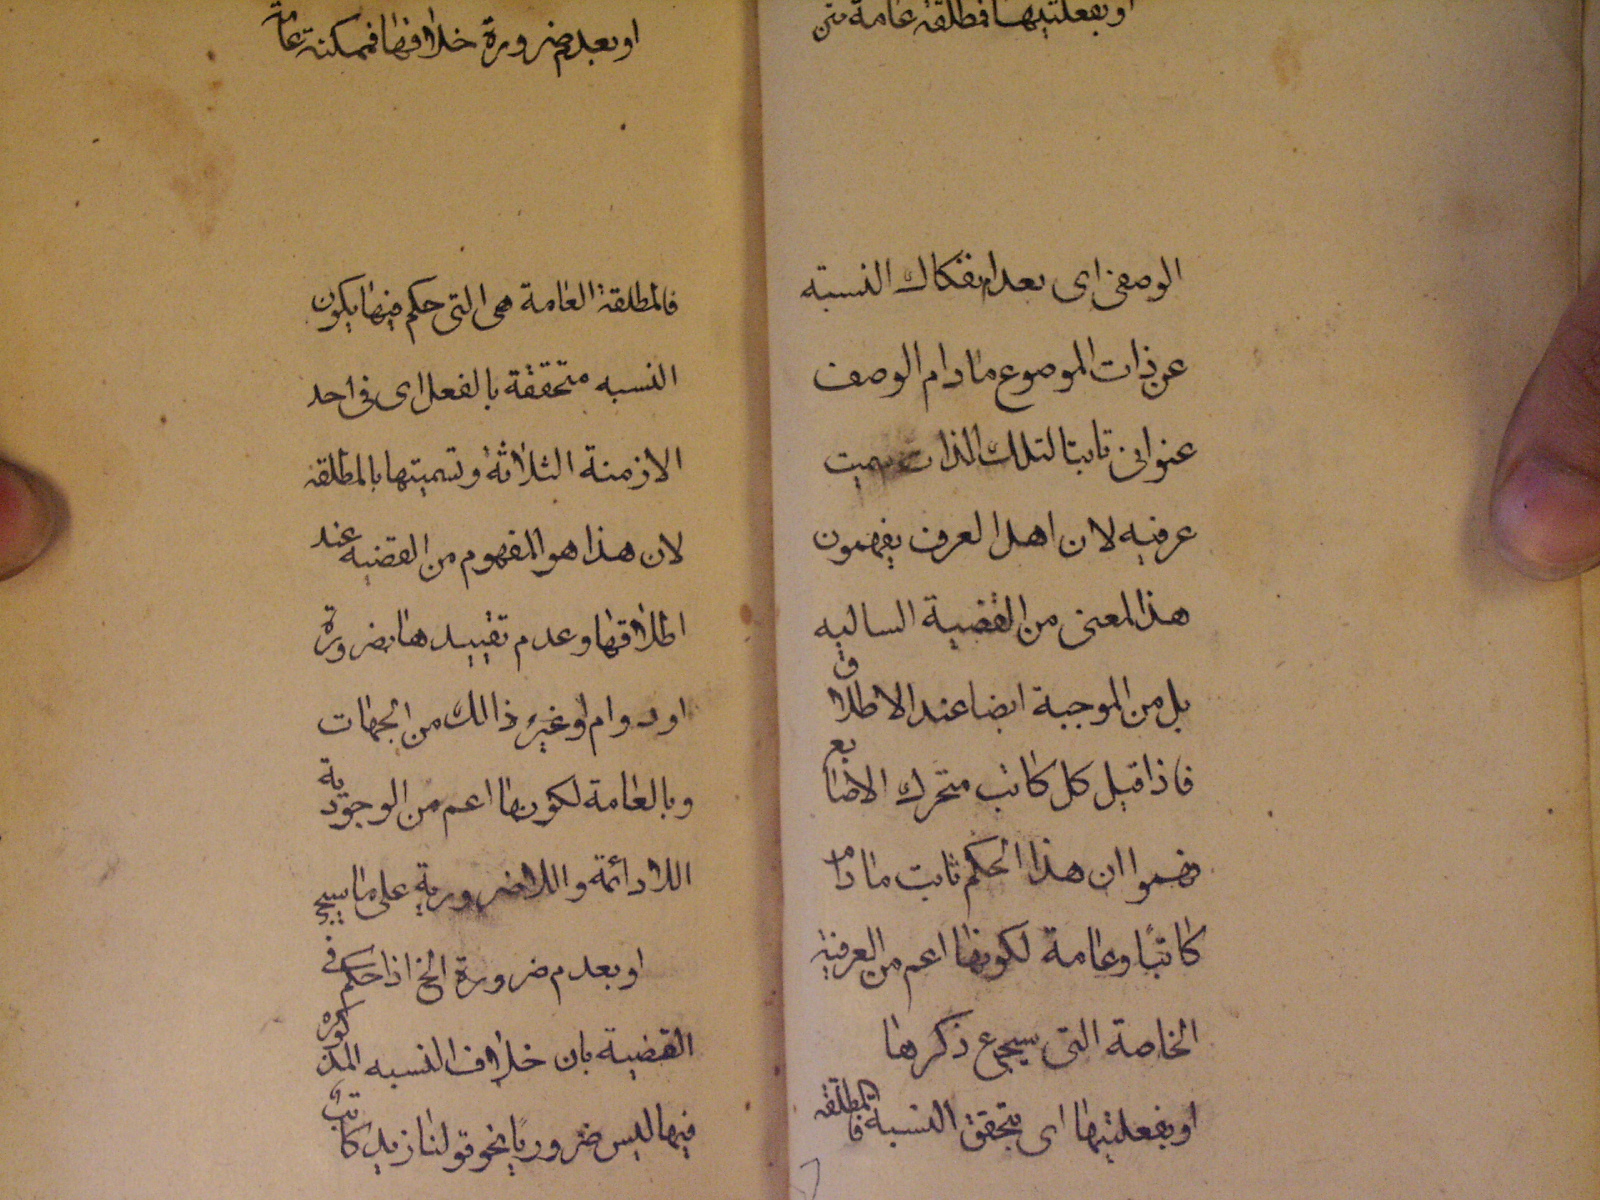 او بفعليتها فمطلقة عامة
الوصفى اى بعدم انفكاك النسبته
عن ذات الموضوع مادام الوصف
عنوانى ثابتا لتلك الذات سميت
عرفيه لان اهل العرف يفهمون
هذا المعنى من القضية السالبه
بل من الموجبة ايضا عند الاطلاق
فاذا قيل كل كاتب متحرك الاصابع
فهموا ان هذا الحكم ثابت مادام
كاتبًا وعامة لكونها اعم من العرفية
الخاصة التى سيجئ ذكرها
او بفعليتها اى بتحقق النسبة فالمطلقة
او بعدم ضرورة خلافها فممكنة عامة
فالمطلقة العامة هى التى حكم فيها بكون
النسبه متحققة بالفعل اى فى احد
الازمنة الثلاثة وتسميتها بالمطلقة
لان هذا هو المفهوم من القضيه عند
اطلاقها وعدم تقييدها بضرورة
او دوام او غير ذالك من الجهات
وبالعامة لكونها اعم من الوجودية
اللادائمة واللاضرورية على ما سيجئ
او بعدم ضرورة الخ اذا حكم فى
القضية بان خلاف النسبه المذكوره
فيها ليس ضروريًا نحو قولنا زيد كاتب